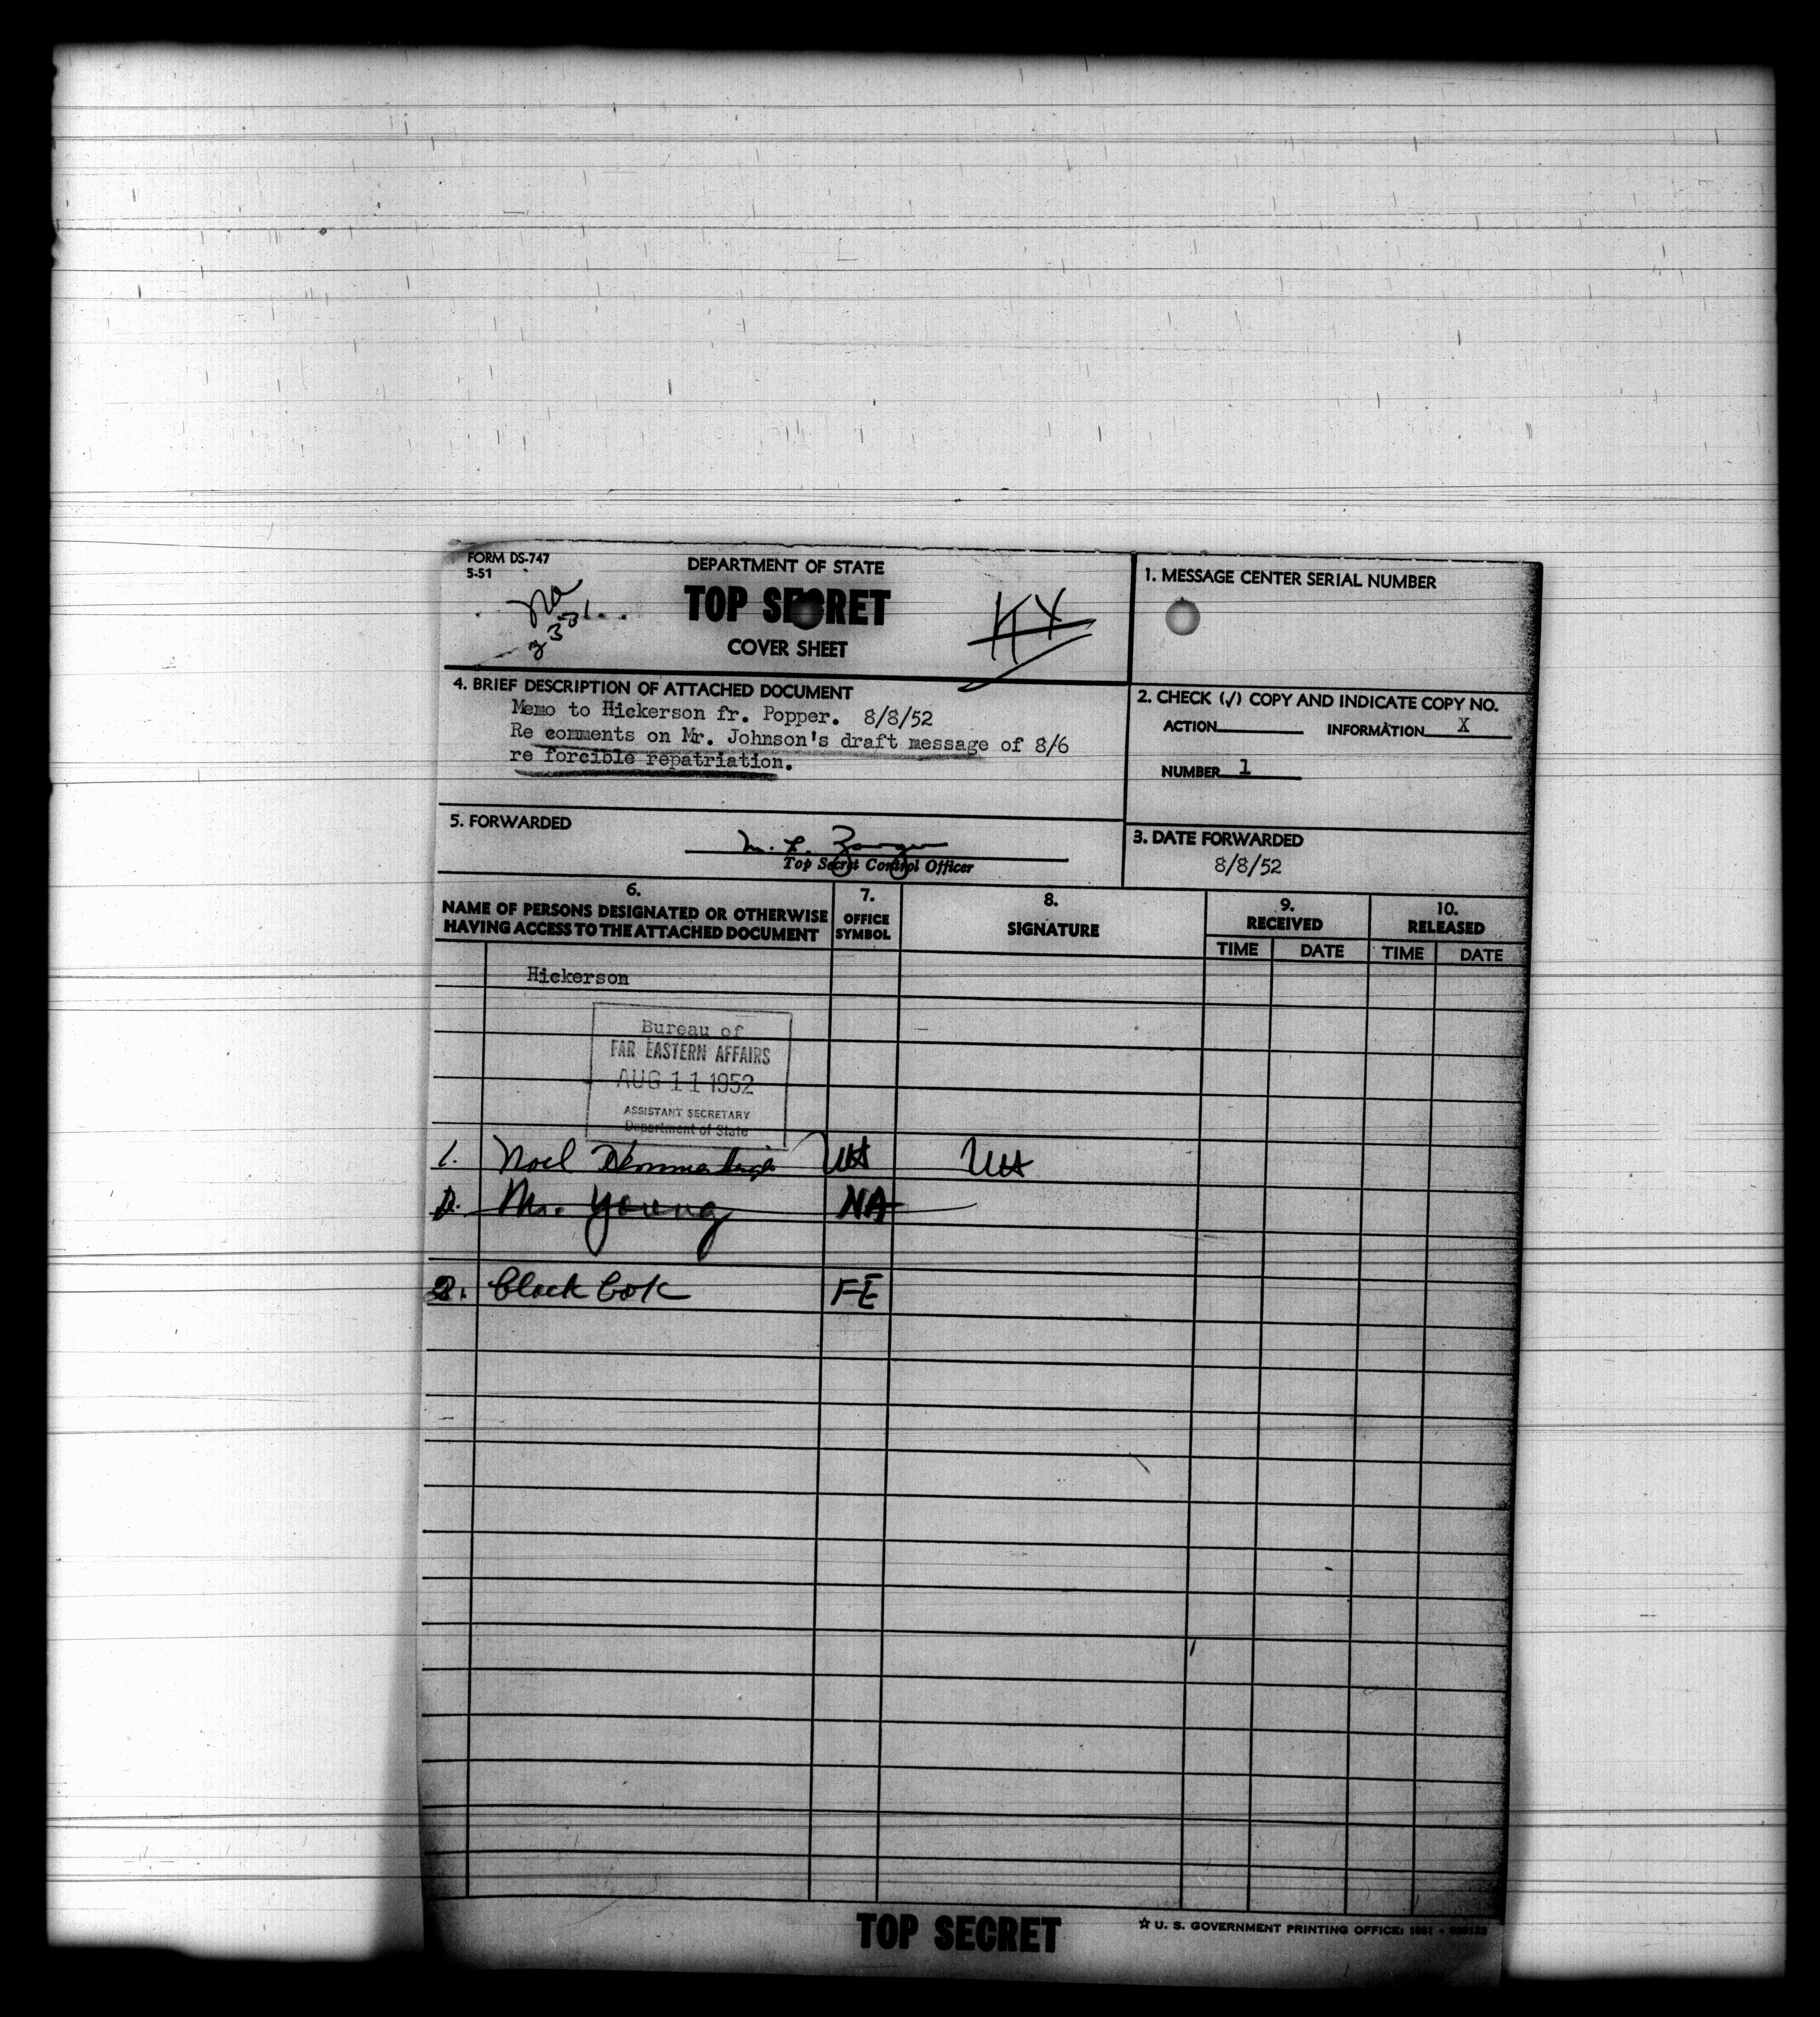 FORM DS-747
5-51
DEPARTMENT OF STATE
TOP SECRET
COVER SHEET
1. MESSAGE CENTER SERIAL NUMBER
4. BRIEF DESCRIPTION OF ATTACHED DOCUMENT
Memo to Hickerson fr. Popper. 8/8/52
Re comments on Mr. Johnson's draft message of 8/6
re forcible repatriation.
2. CHECK (√) COPY AND INDICATE COPY NO.
ACTION INFORMATION X
NUMBER 1
5. FORWARDED
Top Secret Control Officer
3. DATE FORWARDED
8/8/52
6.
NAME OF PERSONS DESIGNATED OR OTHERWISE
HAVING ACCESS TO THE ATTACHED DOCUMENT
7.
OFFICE
SYMBOL
8.
SIGNATURE
9.
RECEIVED
10.
RELEASED
TIME DATE TIME DATE
Hickerson
Bureau of
FAR EASTERN AFFAIRS
AUG 11 1952
ASSISTANT SECRETARY
Department of State
1. Noel
Mr. Young NA
2. FE
TOP SECRET
☆ U. S. GOVERNMENT PRINTING OFFICE: 1951